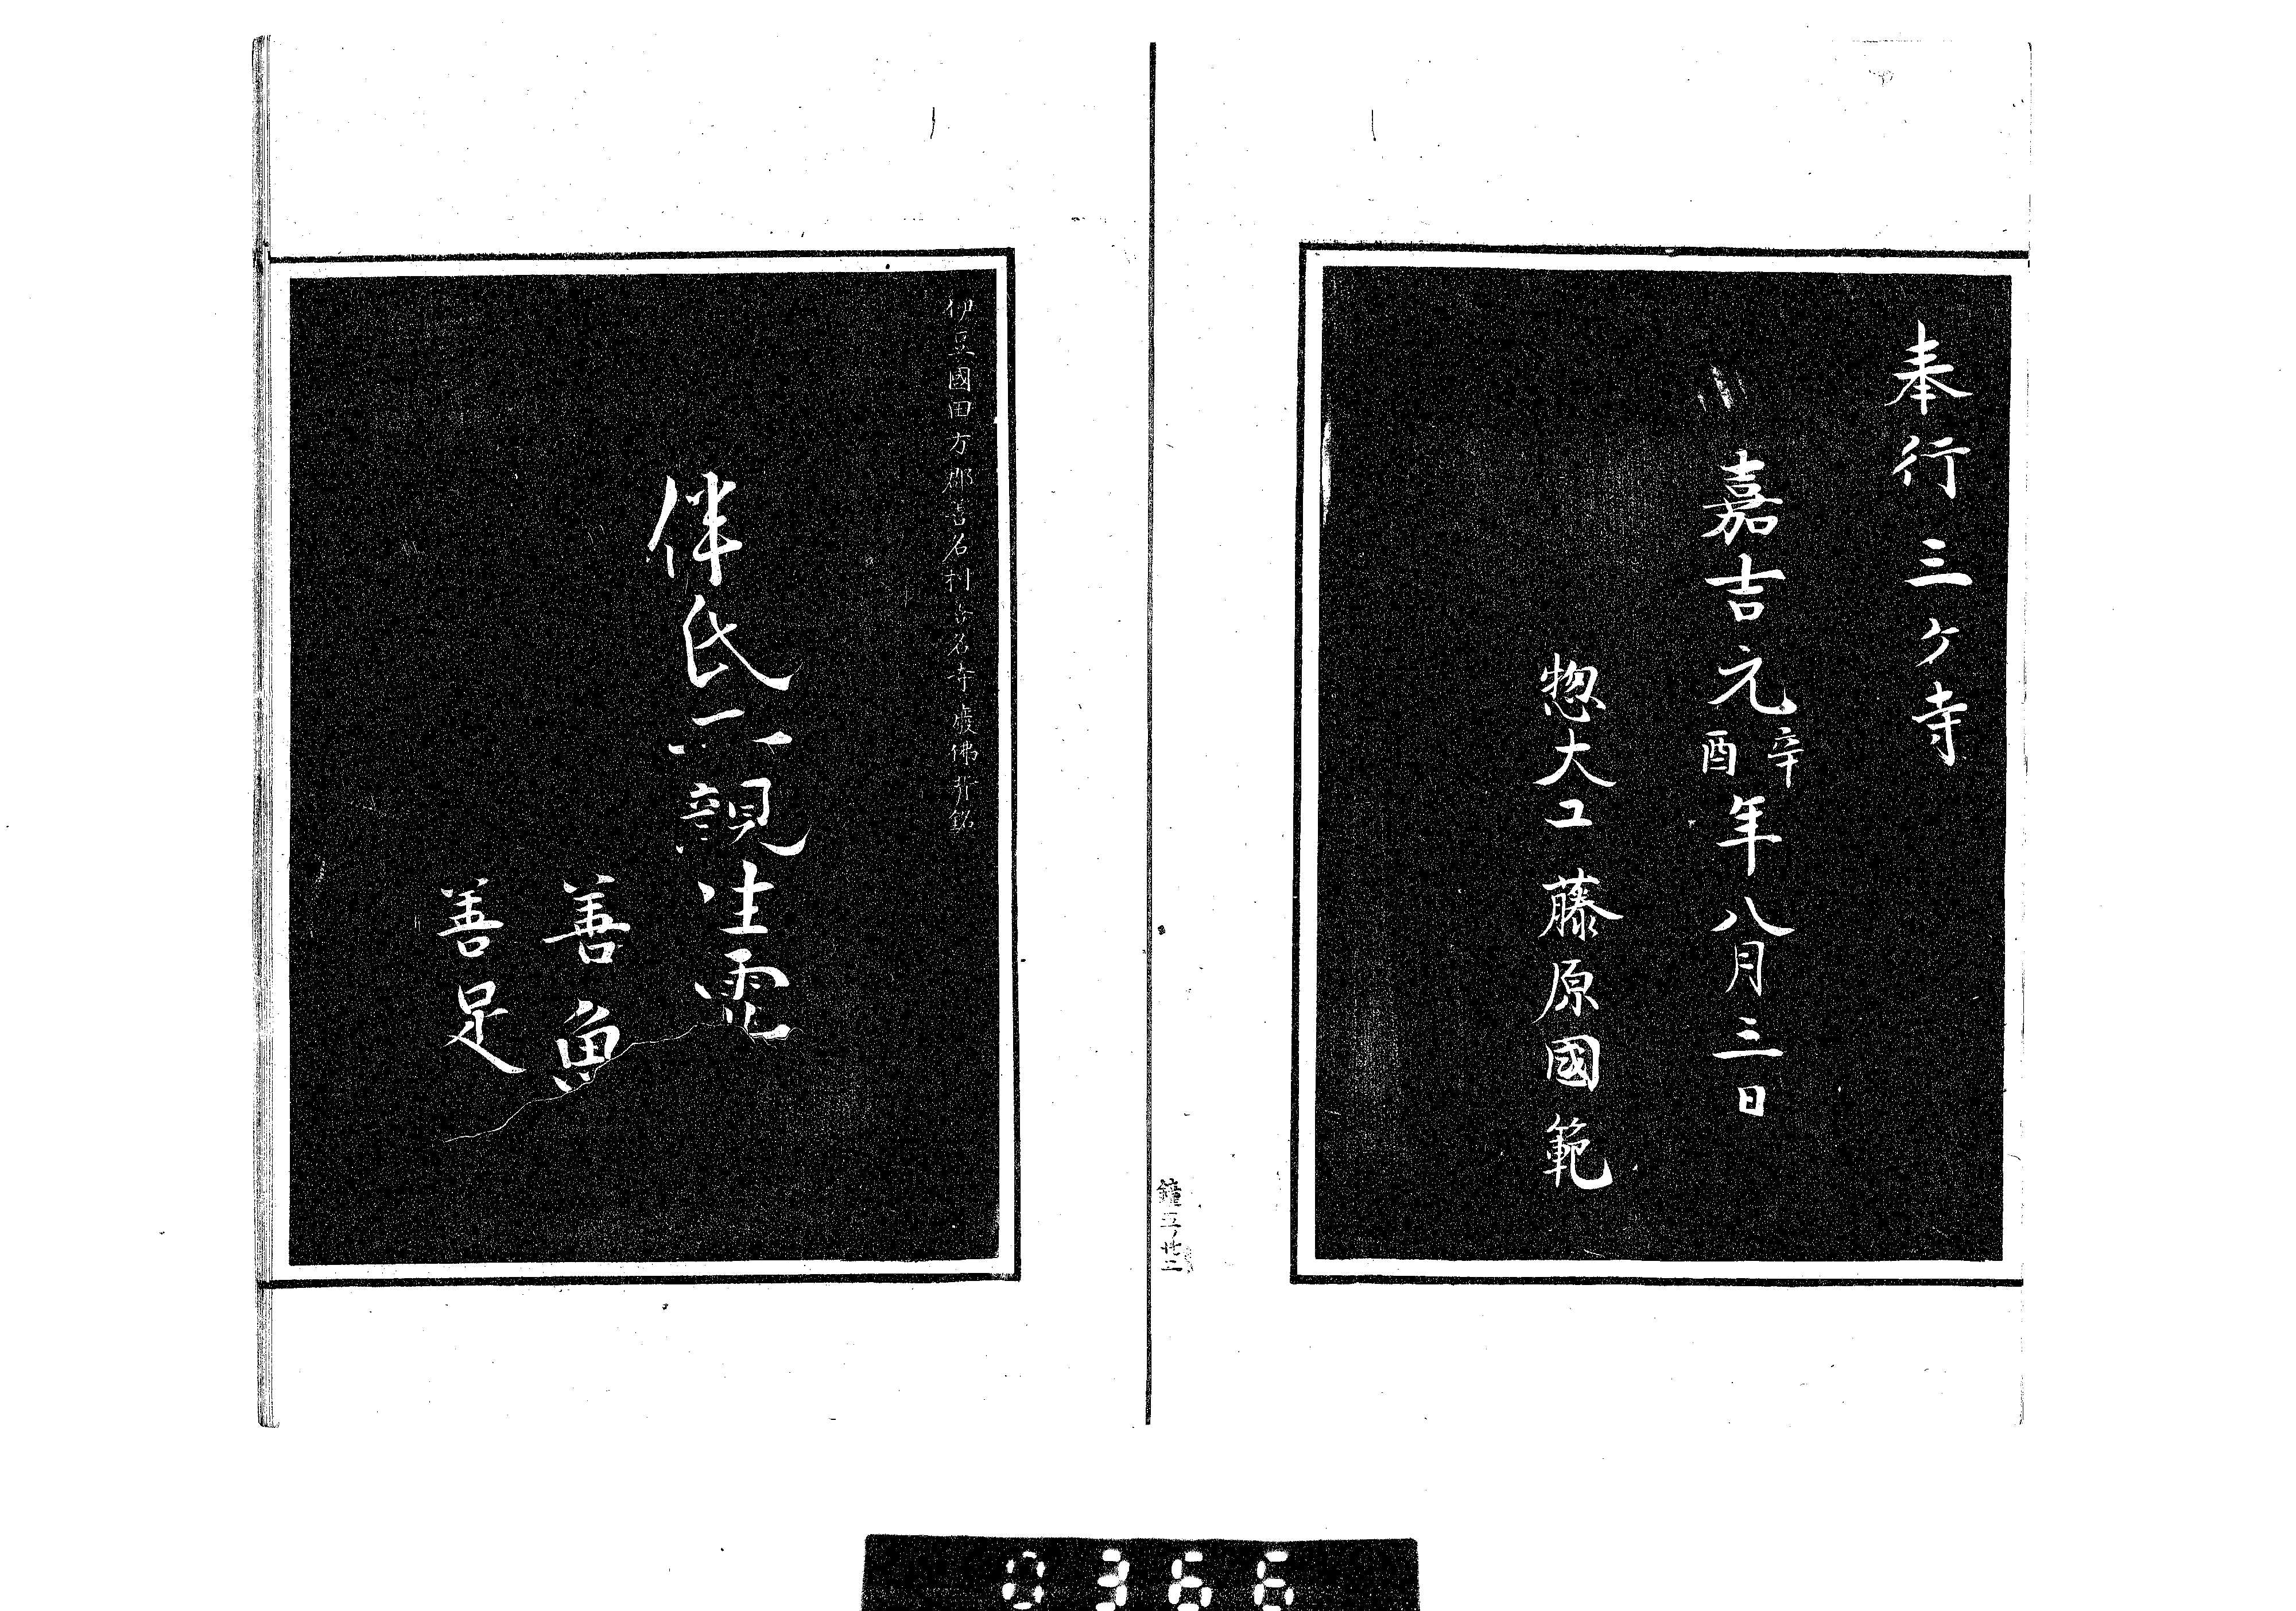 奉行三ヶ寺
嘉吉元辛酉年八月三日
惣大工藤原國範
鐘五ノ廿三
伊豆國田方郡吉名村吉名寺廢佛背銘
伴氏二親生霊
善魚
善足
0366